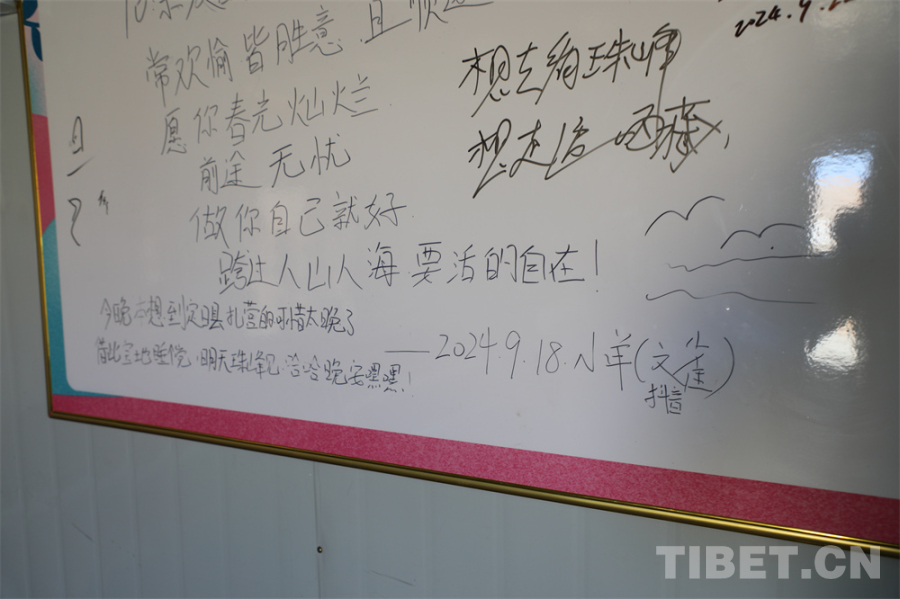 常欢愉皆胜意 且顺遂
愿你春光灿烂
前途无忧
做你自己就好
跨过人山人海 要活的自在!
今晚本想到定日县扎营的可惜太晚了
借此宝地睡觉,明天珠峰见,哈哈晚安嘿嘿!
——2024.9.18.小羊(文
抖音
2024.9.
想去珠峰
想走 西藏
TIBET.CN